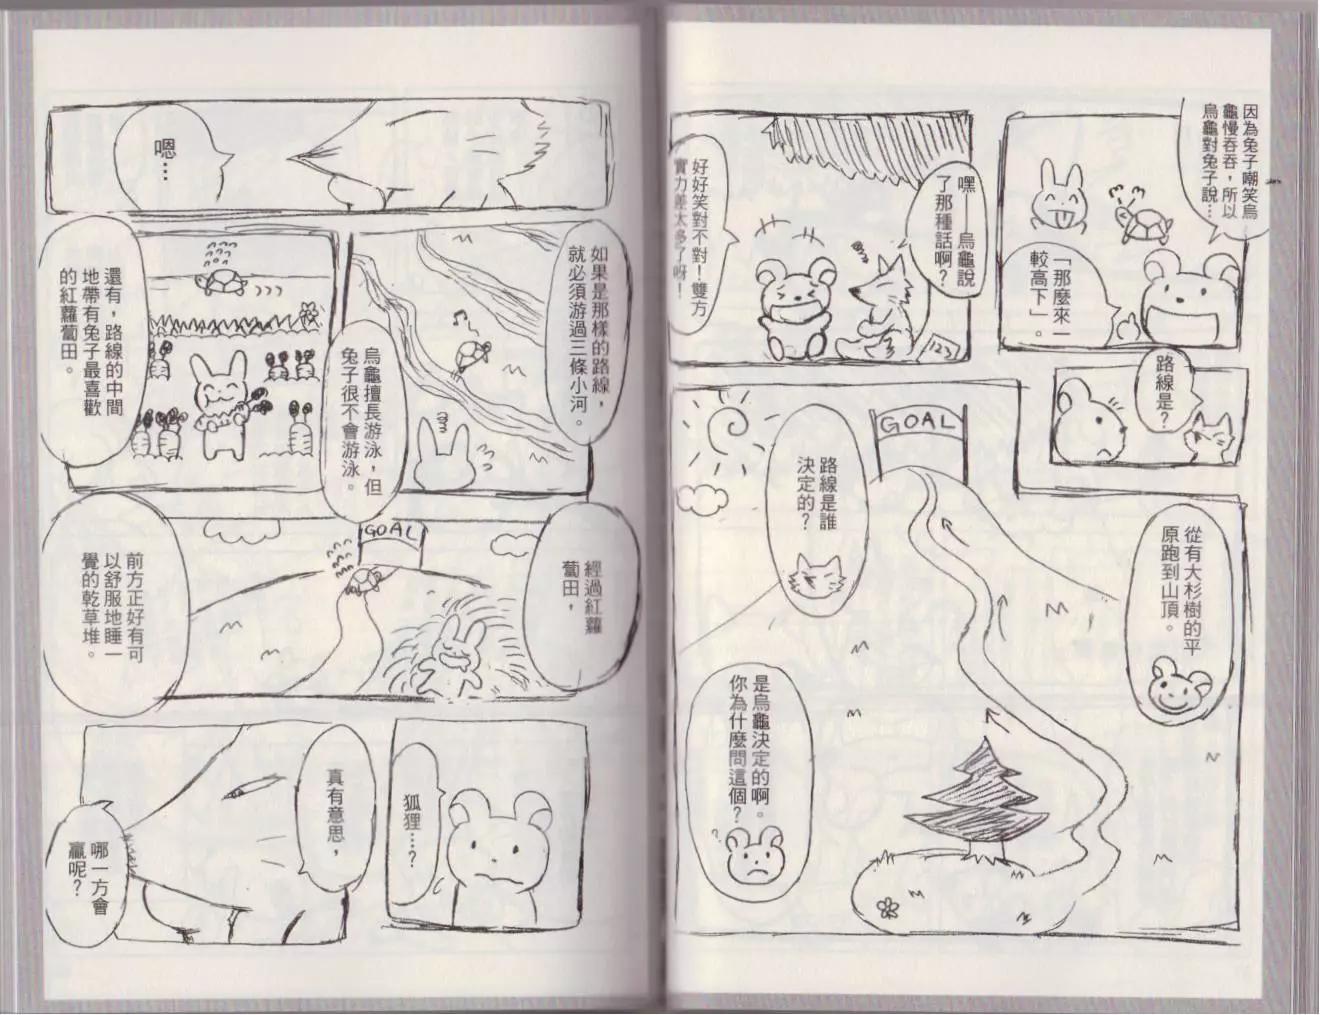 因為兔子嘲笑烏
龜慢吞吞，所以
烏龜對兔子說…
「那麼來一
較高下」。
嘿——烏龜說
了那種話啊？
123
好好笑對不對！雙方
實力差太多了呀！
路線是？
從有大杉樹的平
原跑到山頂。
GOAL
路線是誰
決定的？
是烏龜決定的啊。
你為什麼問這個？
嗯…
如果是那樣的路線，
就必須游過三條小河。
烏龜擅長游泳，但
兔子很不會游泳。
還有，路線的中間
地帶有兔子最喜歡
的紅蘿蔔田。
經過紅蘿
蔔田，
GOAL
前方正好有可
以舒服地睡一
覺的乾草堆。
狐狸…？
真有意思，
哪一方會
贏呢？